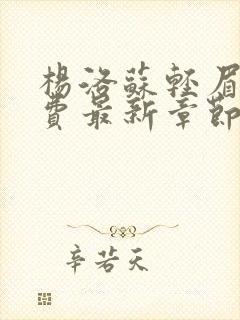 楊洛蘇輕眉
費最新章節
辛若天